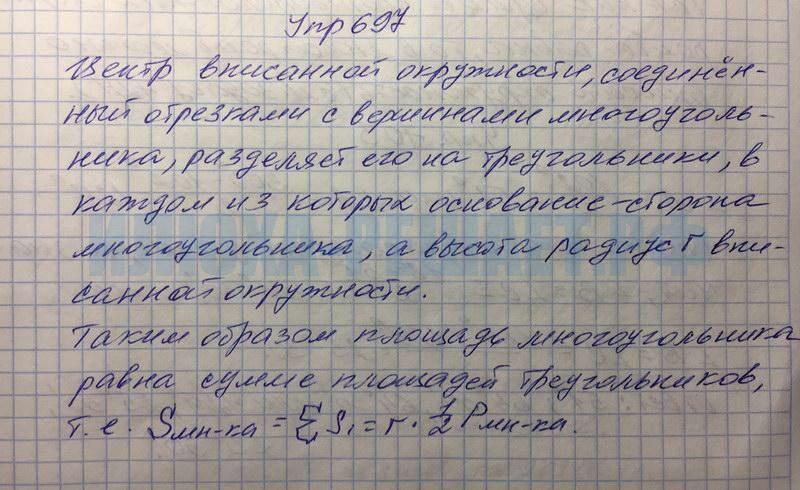 Упр 697
Центр вписанной окружности, соединён-
ный отрезками с вершинами многоуголь-
ника, разделяет его на треугольники, в
каждом из которых основание-сторона
многоугольника, а высота радиус r впи-
санной окружности.
Таким образом площадь многоугольника
равна сумме площадей треугольников,
т.е. Sмн-ка = ∑ S₁ = r · 1/2 Pмн-ка.